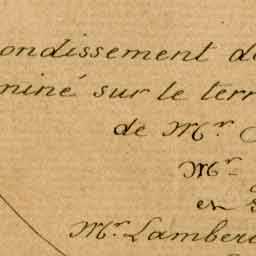 ondissement de
miné sur le terr
de Mr.
Mr.
en
Mr. Lamber